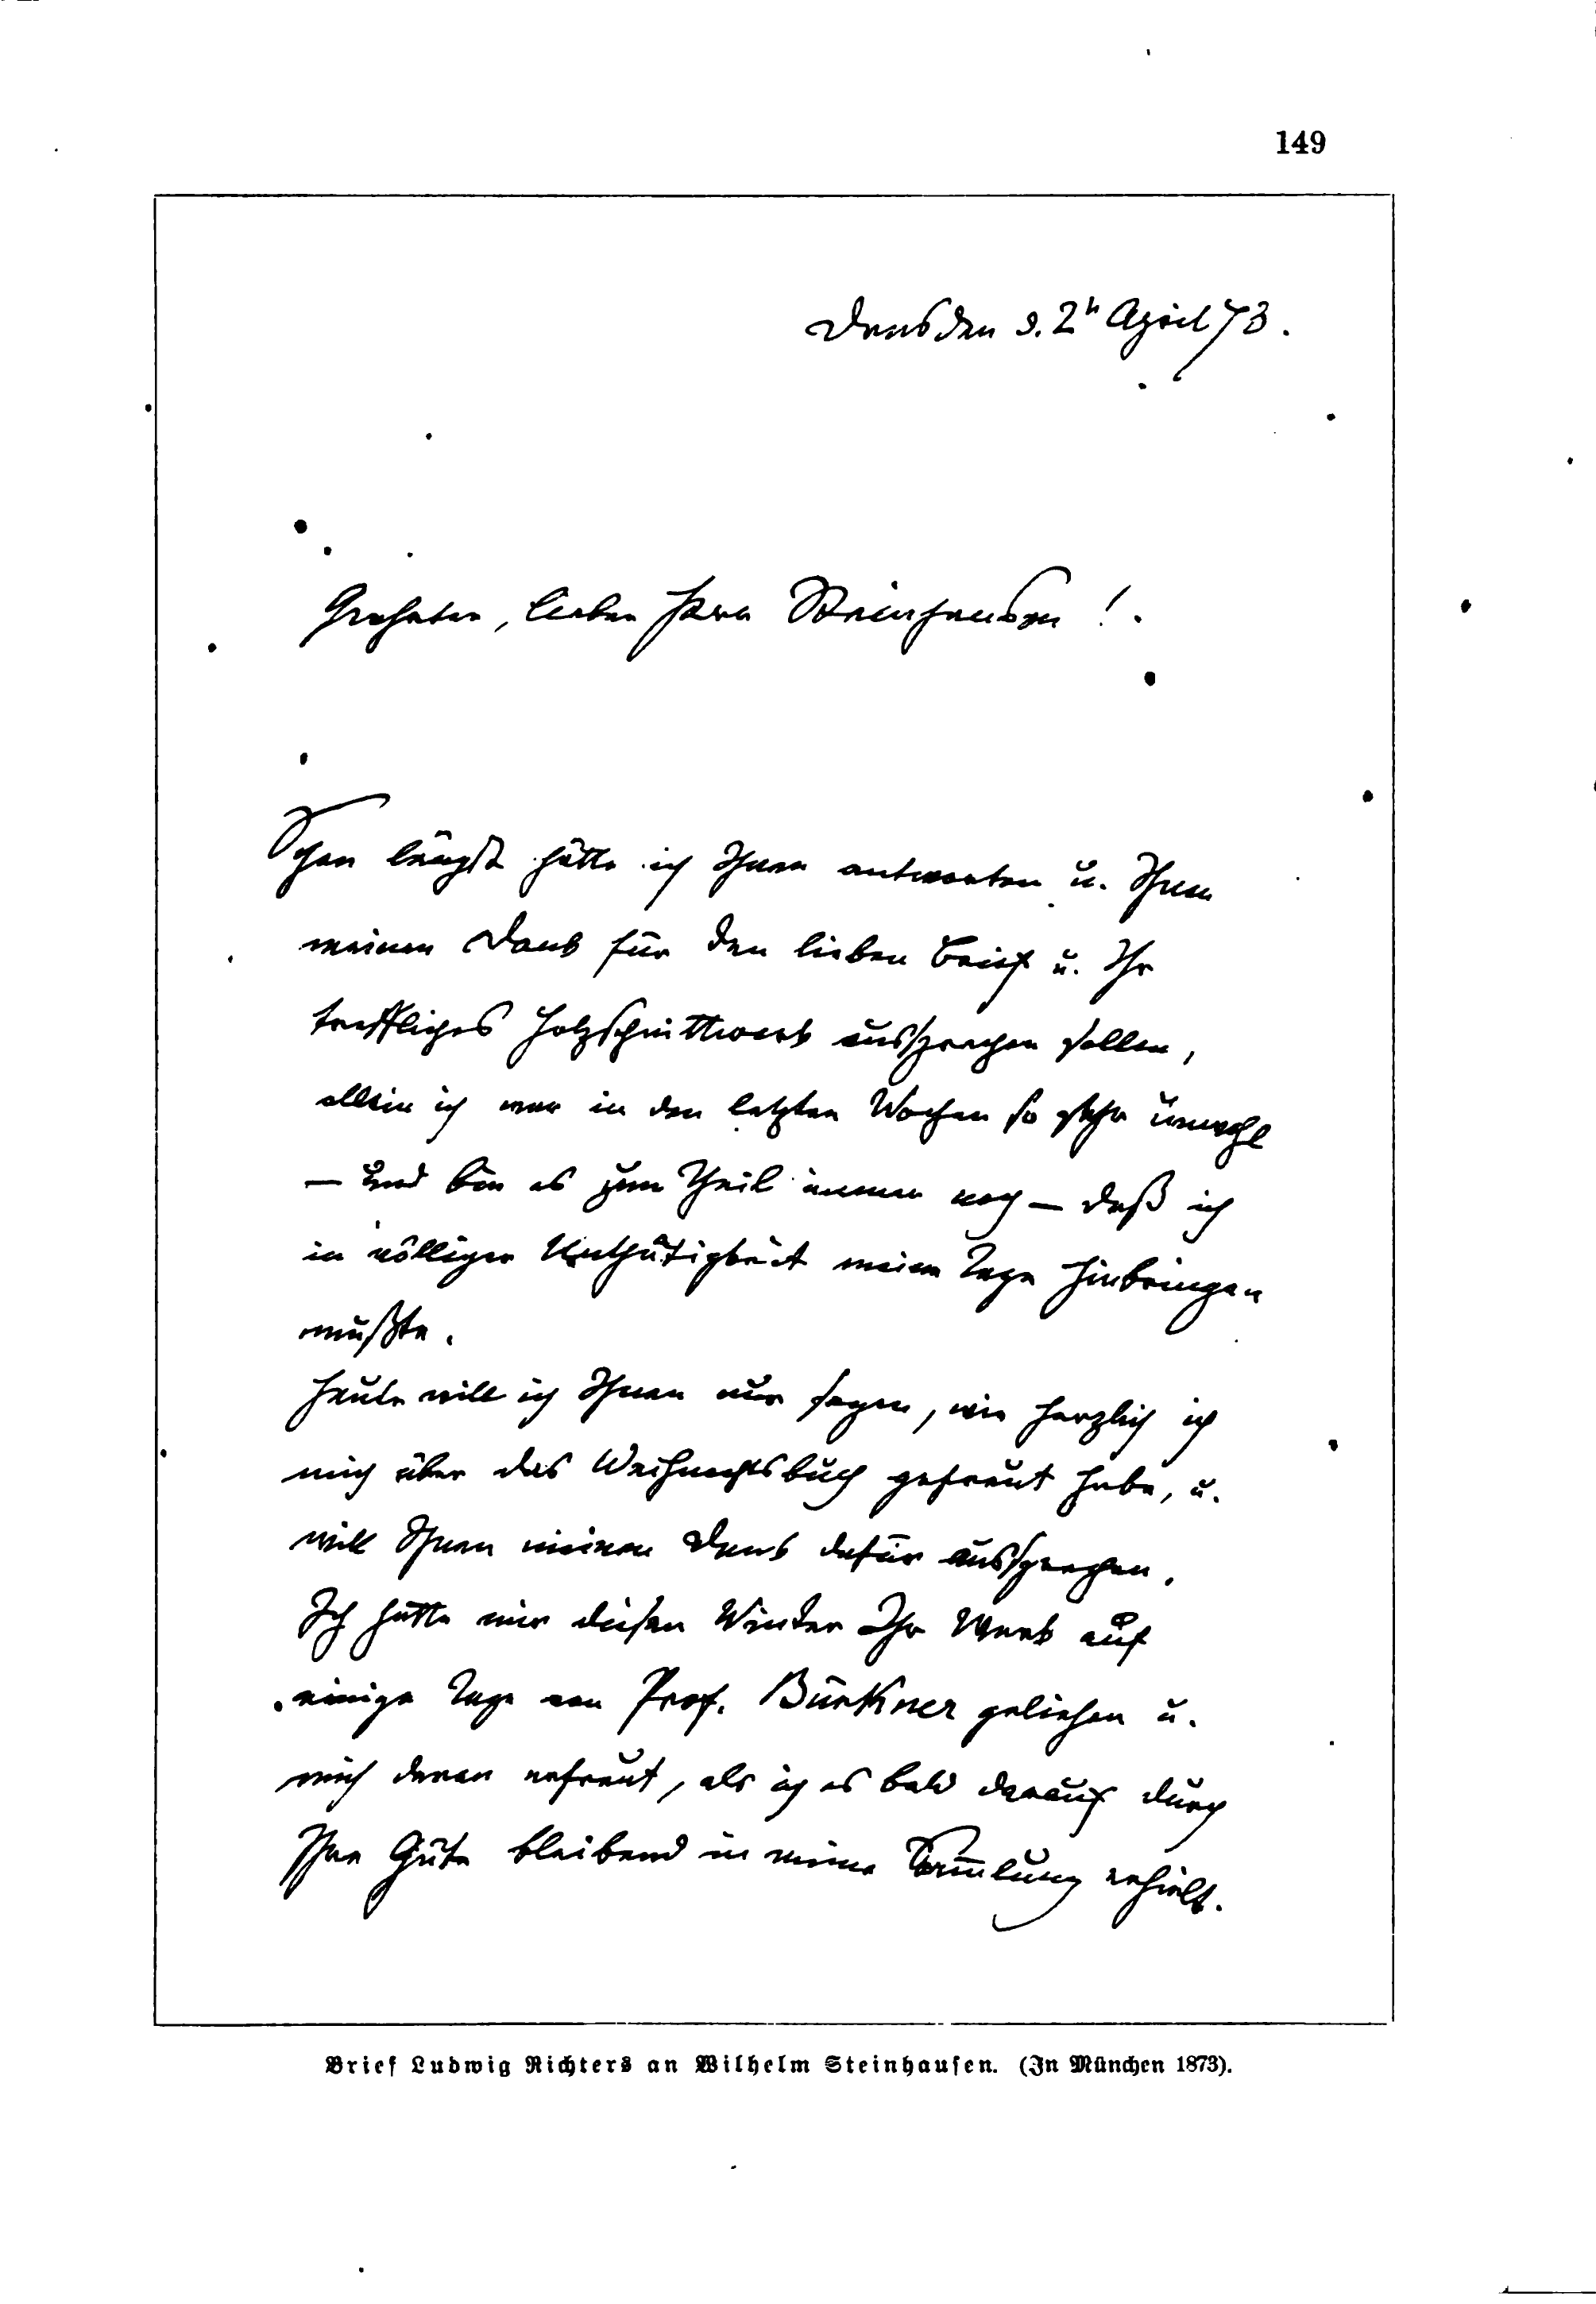 149
Dresden d. 2n April 73.
Geehrter, lieber Herr Steinhausen!
Schon längst hätte ich Ihnen antworten u. Ihnen
meinen Dank für den lieben Brief u. Ihr
treffliches Holzschnittwerk aussprechen sollen,
allein ich war in den letzten Wochen so sehr unwohl
— und bin es zum Theil immer noch — daß ich
in völliger Unthätigkeit meine Tage hinbringen
mußte.
Heute will ich Ihnen nur sagen, wie herzlich ich
mich über das Weihnachtsbuch gefreut habe, u.
will Ihnen meinen Dank dafür aussprechen.
Ich hatte mir diesen Winter Ihr Werk auf
einige Tage von Prof. Bürkner geliehen u.
mich daran erfreut, als ich es bald darauf durch
Ihre Güte bleibend in meine Sam̅lung erhielt.
Brief Ludwig Richters an Wilhelm Steinhausen. (In München 1873).